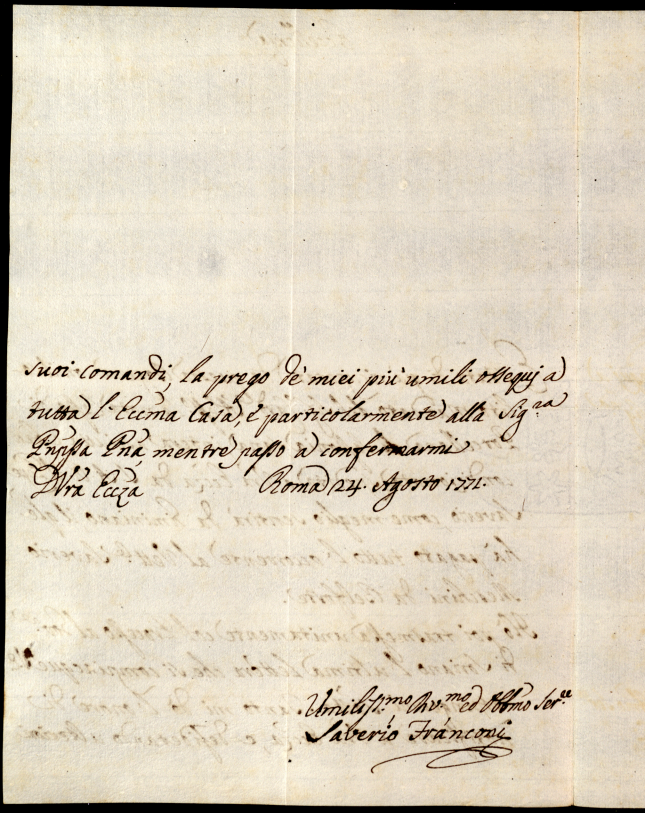 suoi comandi, la prego de' miei più umili ossequj a
tutta l'Eccma Casa, e particolarmente alla Sig.ra
Pnpssa Pna, mentre passo a confermarmi
DVra Eccza Roma 24. Agosto 1771.
Umiliss.mo Div.mo ed Obbmo Ser.re
Saverio Franconi